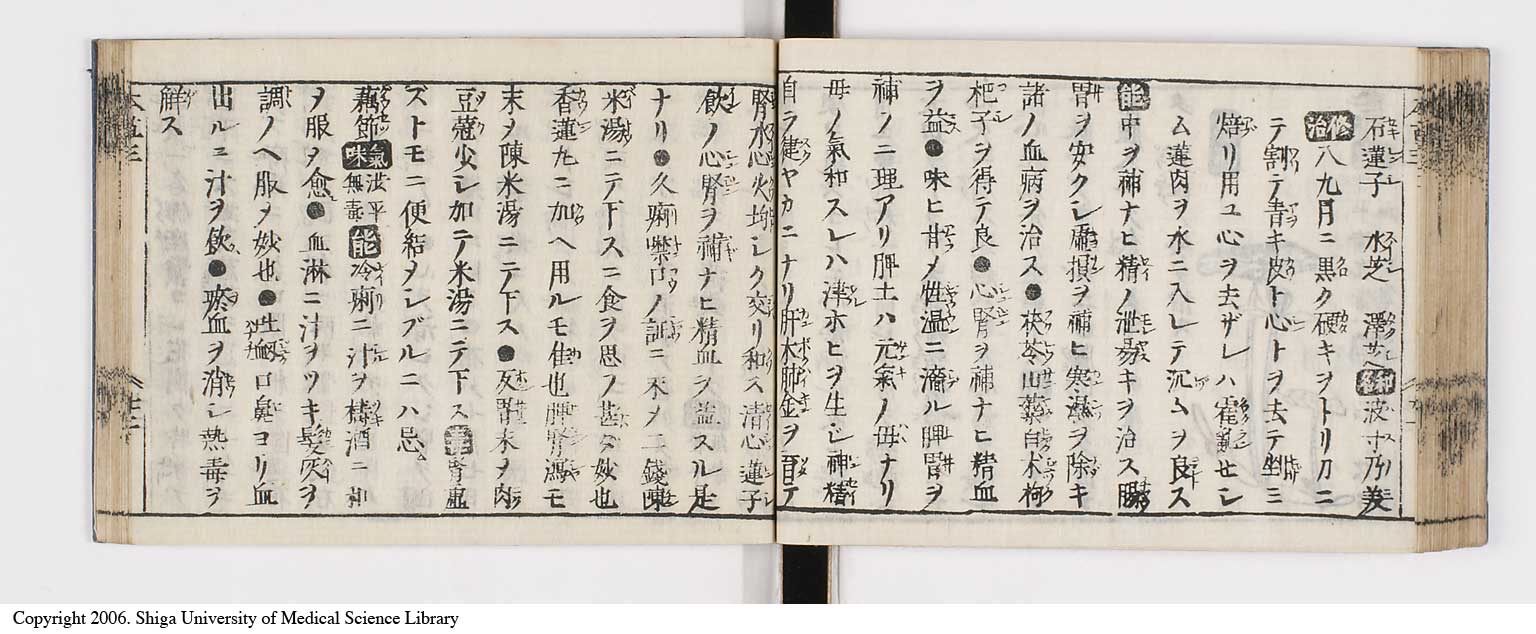 石蓮子 水芝 澤芝 和 波千乃美
修治 八九月ニ黒ク硬キヲトリ刀ニ
テ割テ青キ皮ト心トヲ去テ
焙リ用ユ心ヲ去ザレハ霍乱セシ
ム蓮肉ヲ水ニ入レテ沉ムヲ良ス
能 中ヲ補ナヒ精ノ泄易キヲ治ス腸
胃ヲ安クシ虚損ヲ補ヒ寒湿ヲ除キ
諸ノ血病ヲ治ス●茯苓山薬白朮枸
杞子ヲ得テ良●心腎ヲ補ナヒ精血
ヲ益●味ヒ甘メ性温ニ濇ル脾胃ヲ
補ノニ理アリ脾土ハ元氣ノ母ナリ
母ノ氣和スレハ津ホヒヲ生シ神精
自ラ健ヤカニナリ肝木肺金ヲ
腎水心火均シク交リ和ス清心蓮子
飲ノ心腎ヲ補ナヒ精血ヲ益スル是
ナリ●久痢噤口ノ証ニ末メ二錢陳
米湯ニテ下スニ食ヲ思ノ甚タ妙也
香蓮丸ニ加ヘ用ルモ佳也脾腎瀉モ
末ヲ陳米湯ニテ下ス●反胃末ヲ肉
豆蔲少シ加ニテ米湯ニテ下ス 腎虚
ズトモニ便結ヲシブルニハ忌
藕節 氣味 渋平無毒 能 冷痢ニ汁ヲ搗酒ニ和
ヲ服ヲ愈●血淋ニ汁ヲツキ髪灰ヲ
調ノヘ服メ妙也●吐衂口鼻ヨリ血
出ルニ汁ヲ飲●瘀血ヲ消シ熱毒ヲ
解ス
Copyright 2006. Shiga University of Medical Science Library